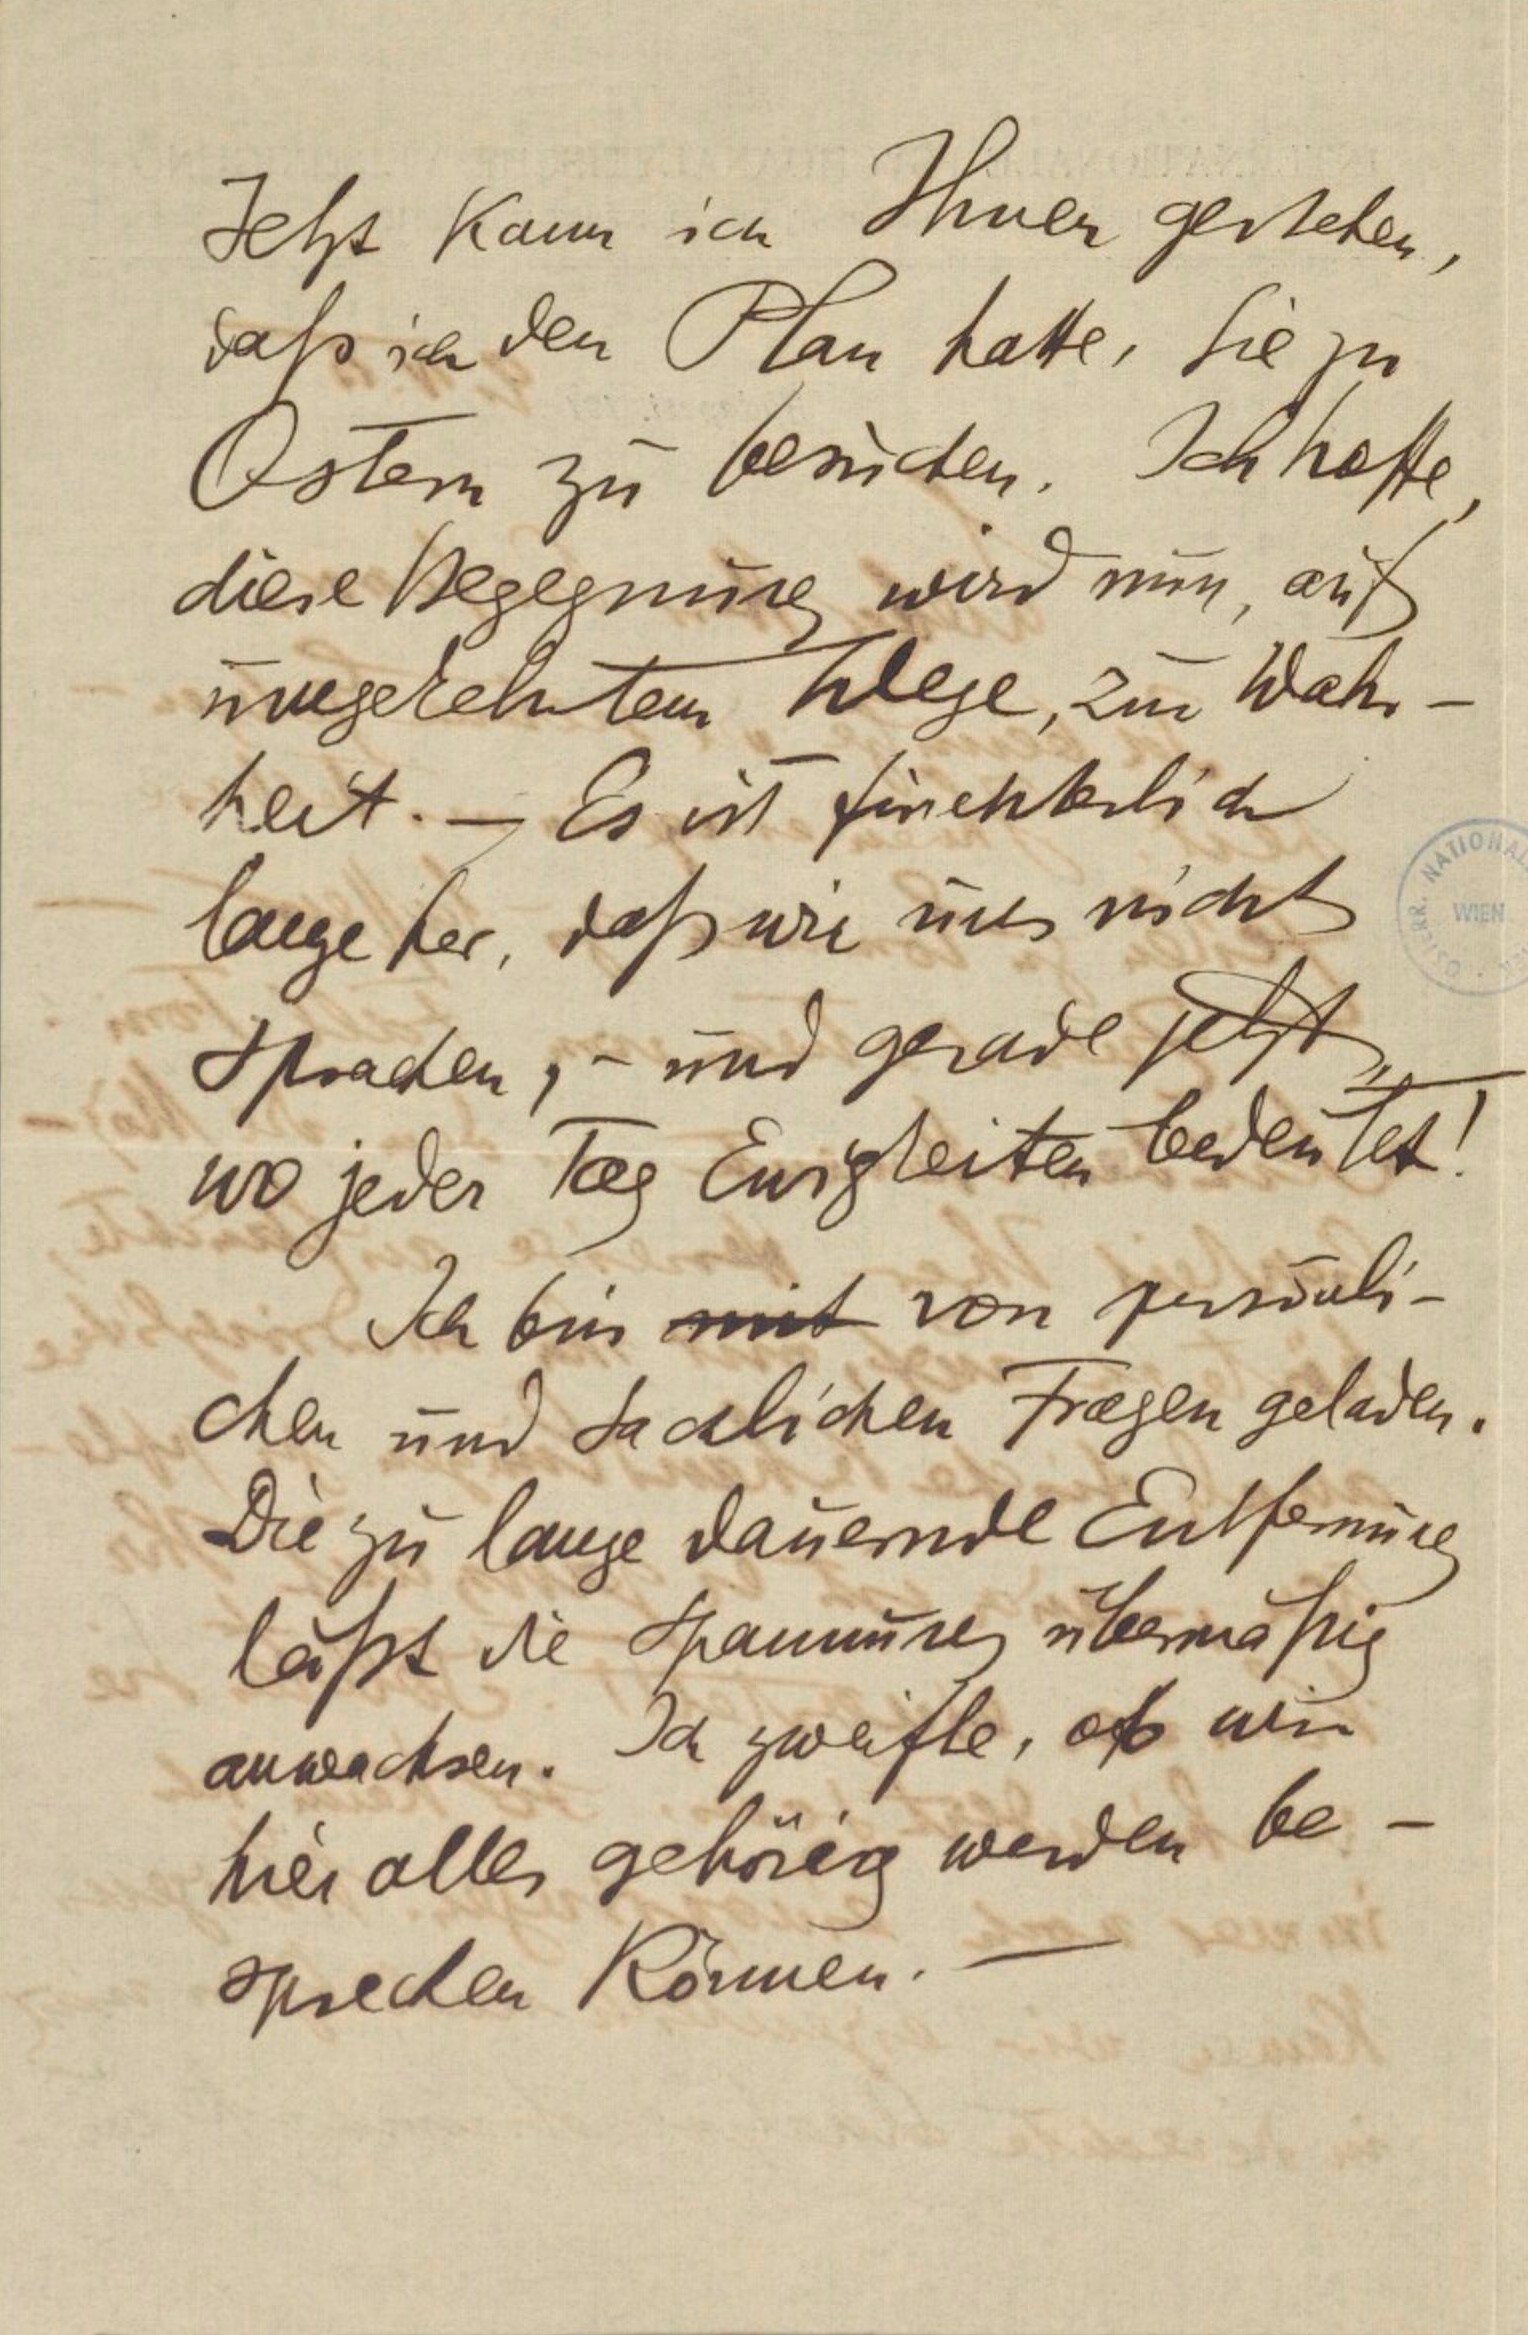 Jetzt kann ich Ihnen gestehen,
daß ich den Plan hatte, Sie zu
Ostern zu besuchen. Ich hoffe,
diese Begegnung wird nun, auf
umgekehrtem Wege, zur Wahr-
heit. — Es ist fürchterlich
lange her, daß wir uns nicht
sprachen, – und gerade jetzt,
wo jeder Tag Ewigkeiten bedeutet!
Ich bin mit von persönli-
chen und sachlichen Fragen geladen.
Die zu lange dauernde Entfernung
läßt die Spannung übermäßig
anwachsen. Ich zweifle, ob wir
hier alles gehörig werden be-
sprechen können. —
NATIONAL
WIEN
ÖSTERR.